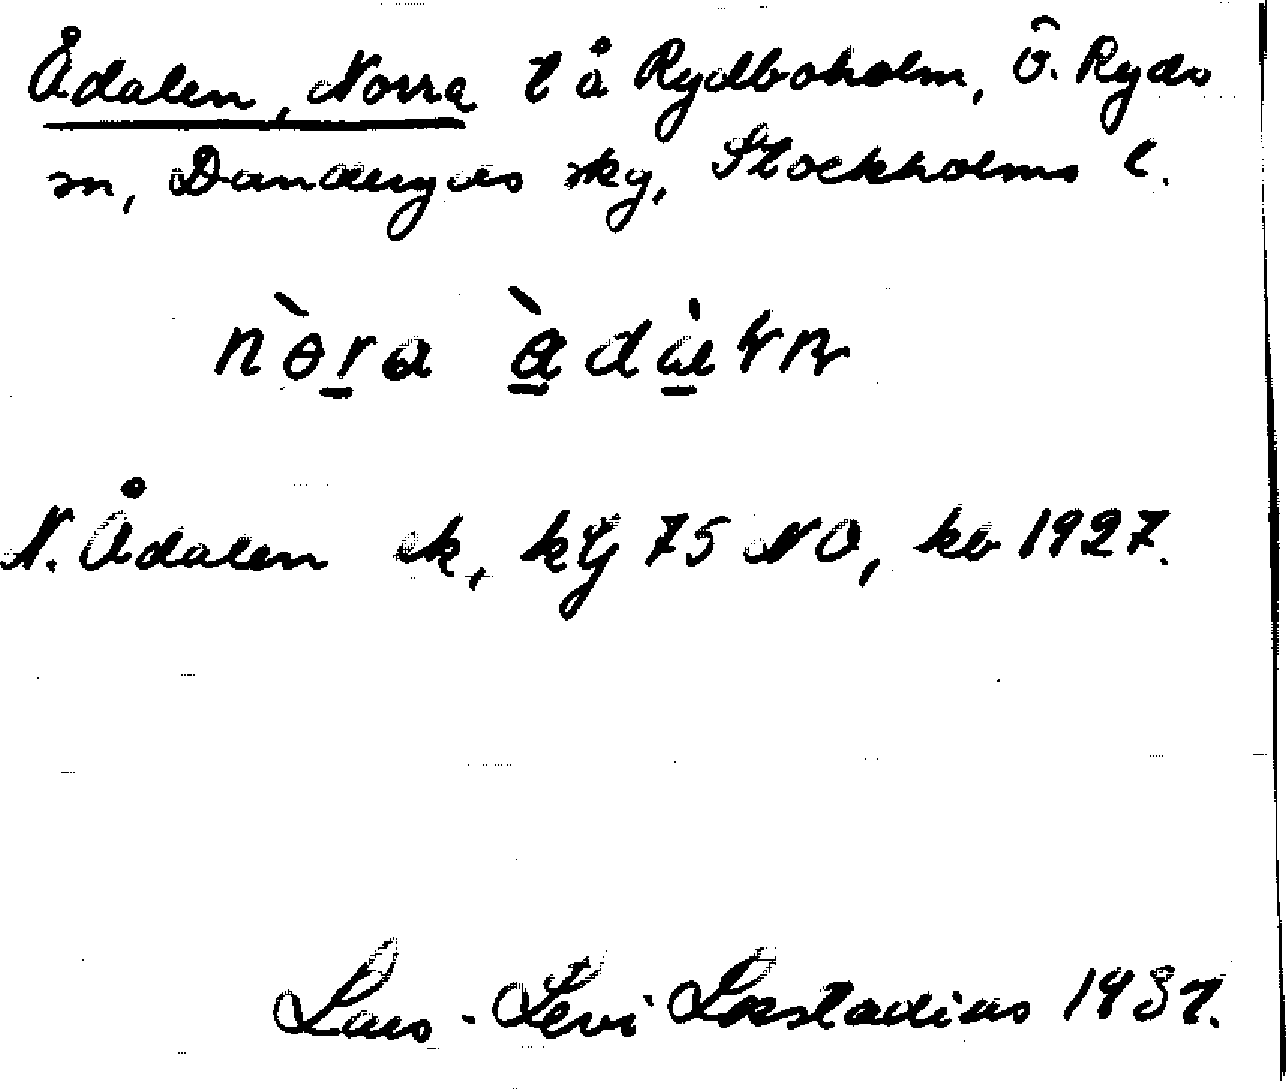 Ådalen, Norra t å Rydboholm, Ö. Ryds
sn, Danderyds skg, Stockholms l.
N. Ådalen ek, kbl 75 NO, kb 1927.
Lars-Levi Læstadius 1937.